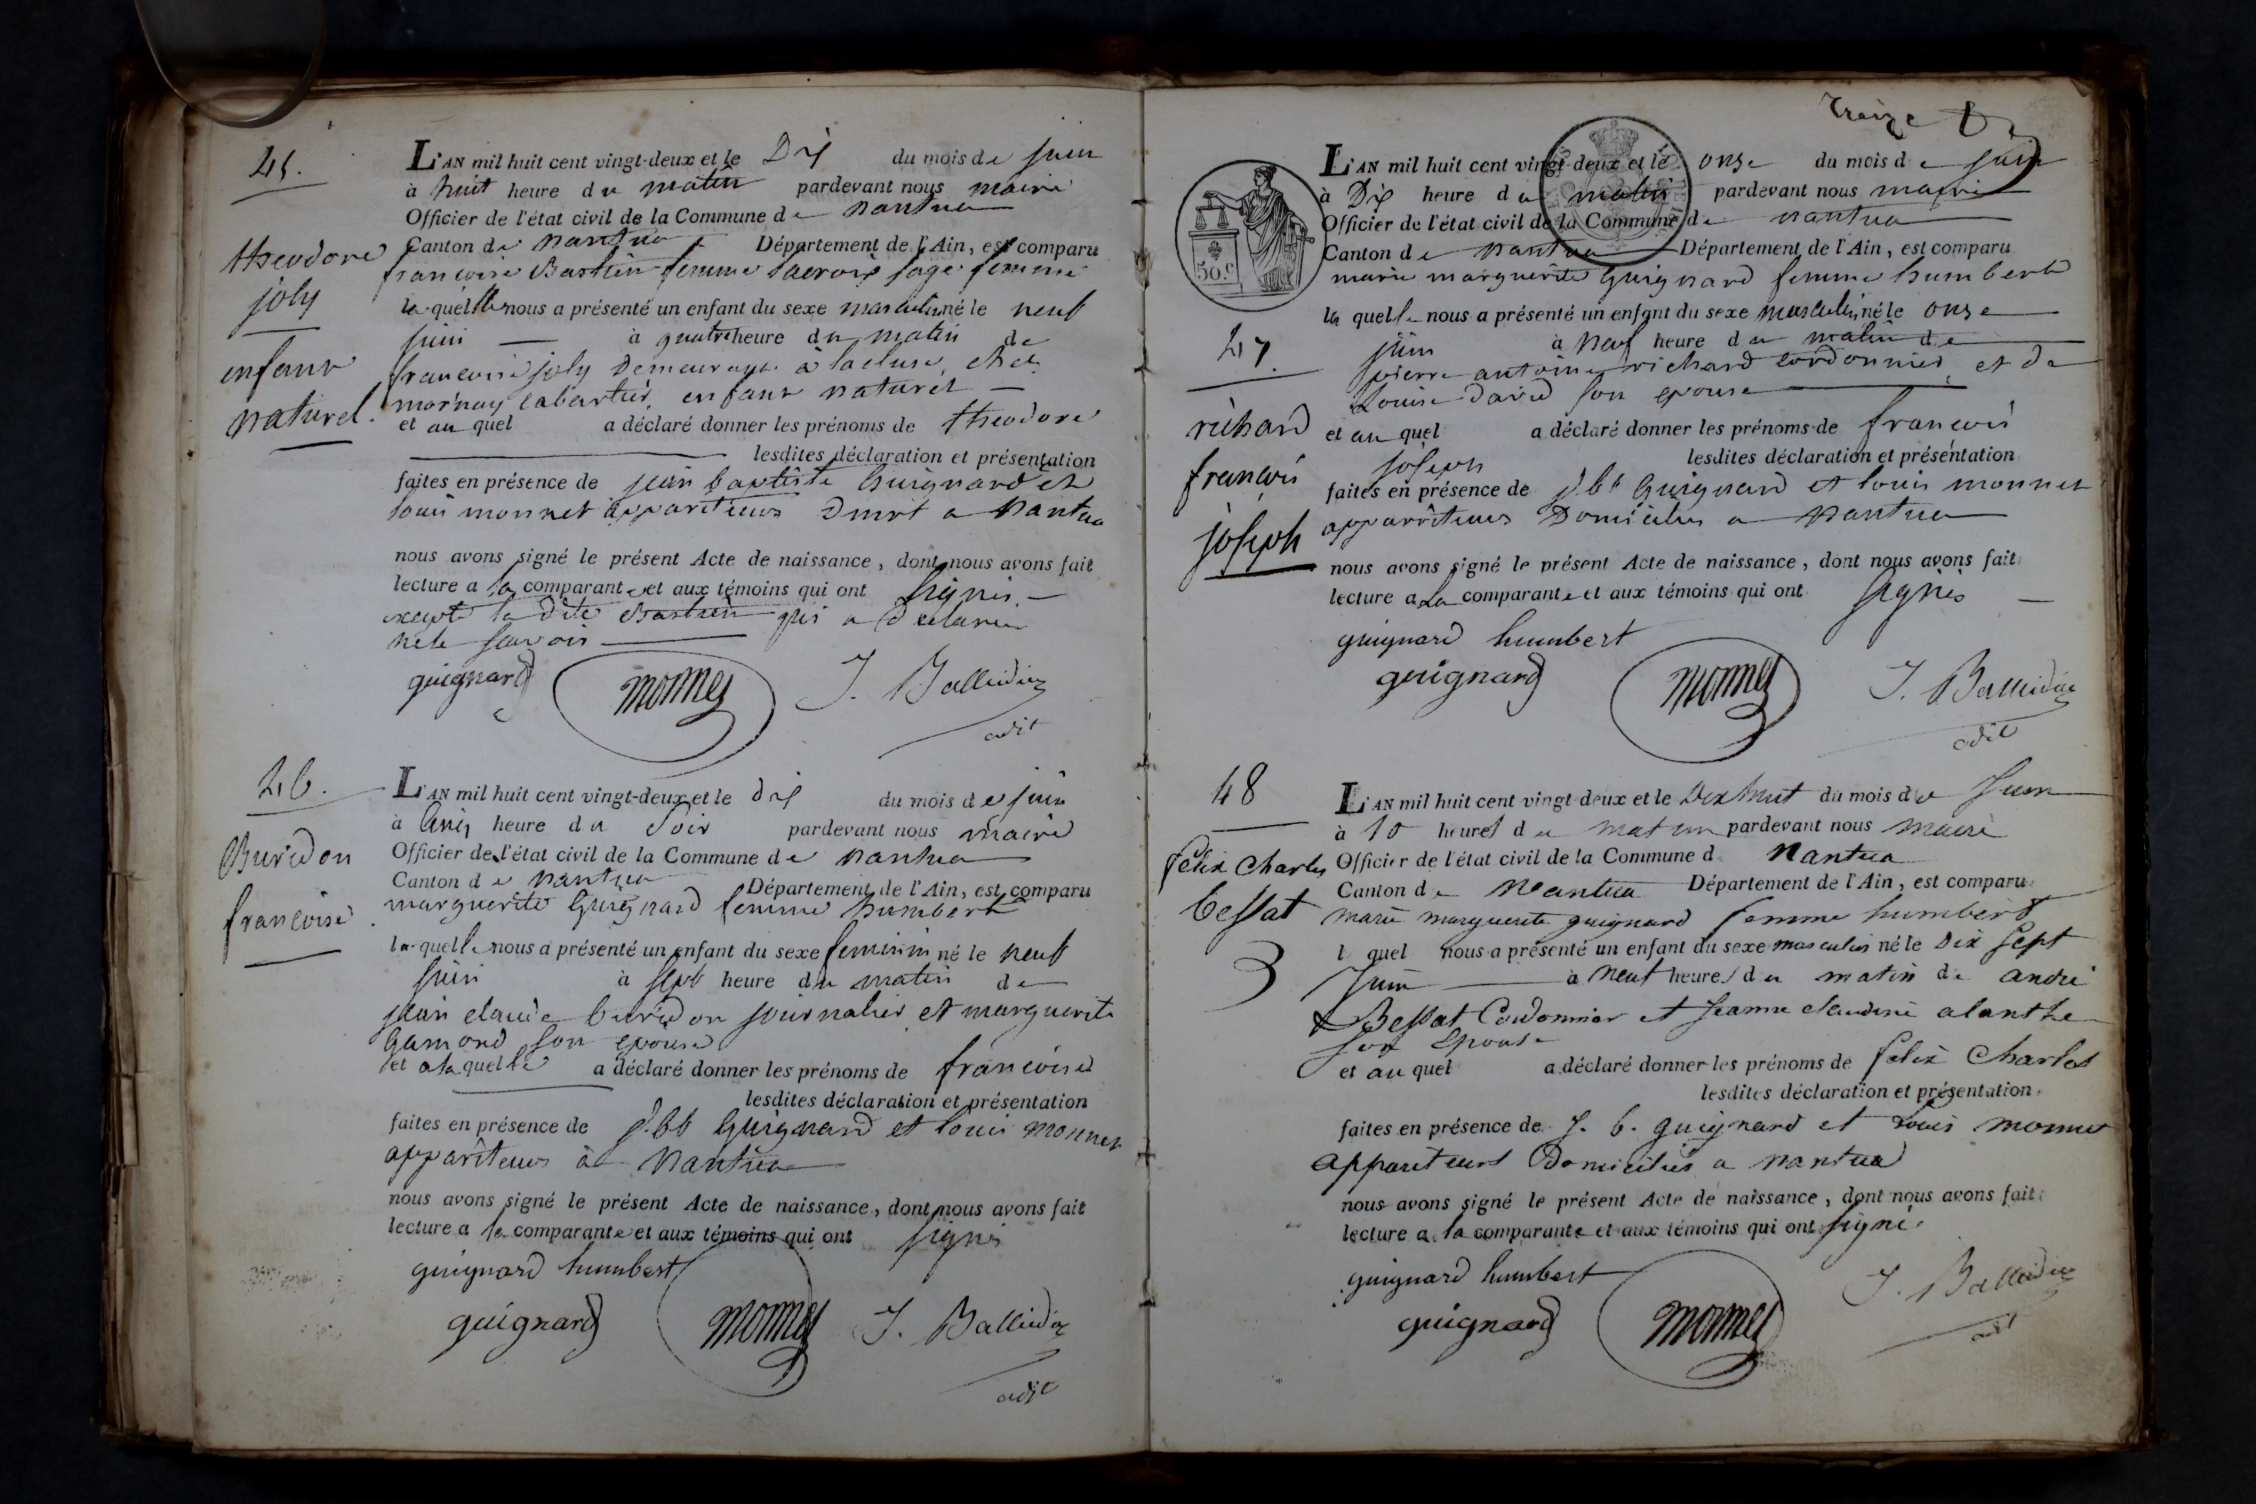 45.
theodore
joly
enfant
naturel.
L'AN mil huit cent vingt-deux et le Dix du mois de juin
à huit heure du matin pardevant nous maire
Officier de l'état civil de la Commune de nantua
Canton de nantua Département de l'Ain, est comparu
francoise Bastien femme lacroix sage femme
laquelle nous a présenté un enfant du sexe masculin né le neuf
juin à quatre heure du matin de
francoise joly demeurant à lacluse, chez
mornay cabartier, enfant naturel
et au quel a déclaré donner les prénoms de theodore
lesdites déclaration et présentation
faites en présence de jean baptiste Guignard et
louis monnet appariteurs Dmrt a Nantua
nous avons signé le présent Acte de naissance, dont nous avons fait
lecture a la comparante et aux témoins qui ont signés.
excepté la dite Bastien qui a declaré
ne le savoir
guignard monnet J. Balleidier
adjt
46.
Buridon
francoise
L'AN mil huit cent vingt-deux et le dix du mois de juin
à Cinq heure du Soir pardevant nous maire
Officier de l'état civil de la Commune de nantua
Canton de nantua Département de l'Ain, est comparu
marguerite Guignard femme humbert
laquelle nous a présenté un enfant du sexe feminin né le neuf
juin à sept heure du matin de
jean claude buridon journalier et marguerite
Gamond son epouse
et a laquelle a déclaré donner les prénoms de francoise
lesdites déclaration et présentation
faites en présence de J. bt Guignard et louis monnet
appariteurs à Nantua
nous avons signé le présent Acte de naissance, dont nous avons fait
lecture a la comparante et aux témoins qui ont signés
guignard humbert
guignard monnet J. Balleidier
adjt
Treize
50.C
47.
richard
francois
joseph
L'AN mil huit cent vingt-deux et le onze du mois de juin
à Dix heure du matin pardevant nous maire
Officier de l'état civil de la Commune de nantua
Canton de nantua Département de l'Ain, est comparu
marie marguerite Guignard femme humbert
laquelle nous a présenté un enfant du sexe masculin né le onze
juin à neuf heure du matin de
pierre antoine richard cordonnier et de
Louise David son epouse
et au quel a déclaré donner les prénoms de francois
joseph lesdites déclaration et présentation
faites en présence de J. bt Guignard et louis monnet
appariteurs Domiciliés a nantua
nous avons signé le présent Acte de naissance, dont nous avons fait
lecture a La comparante et aux témoins qui ont signés
guignard humbert
guignard monnet J. Balleidier
adjt
48
felix Charles
bessat
3
L'AN mil huit cent vingt-deux et le Dix huit du mois de Juin
à 10 heures du matin pardevant nous maire
Officier de l'état civil de la Commune d Nantua
Canton de Nantua Département de l'Ain, est comparu
marie marguerite guignard femme humbert
l quel nous a présenté un enfant du sexe masculin né le Dix Sept
Juin à neuf heures du matin de andré
Bessat Cordonnier et Jeanne claudine alanthe
son Epouse
et au quel a déclaré donner les prénoms de felix Charles
lesdites déclaration et présentation
faites en présence de J. b. guignard et Louis monnet
appariteurs Domiciliés a nantua
nous avons signé le présent Acte de naissance, dont nous avons fait
lecture a la comparante et aux témoins qui ont signé.
guignard humbert
guignard monnet J. Balleidier
adjt